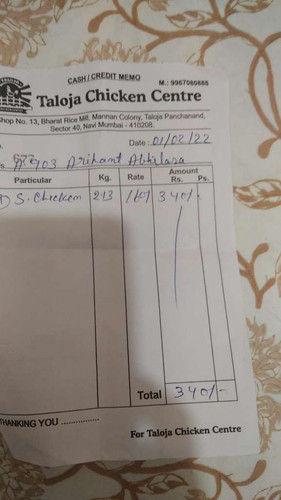 CASH / CREDIT MEMO
M.: 9967080888
Taloja Chicken Centre
Shop No. 13, Bharat Rice Mill, Mannan Colony, Taloja Panchanand,
Sector 40, Navi Mumbai - 410208.
Date : 01/02/22
903 Arihant
Particular Kg. Rate Amount
Rs. Ps.
S. Chicken 2.13 160/ 340/-
Total 340/-
THANKING YOU ...............
For Taloja Chicken Centre